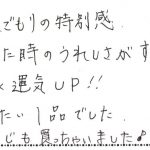 どもりの特別感
た時のうれしさがす
く運気UP!!
たい1品でした.
じも買っちゃいました♪